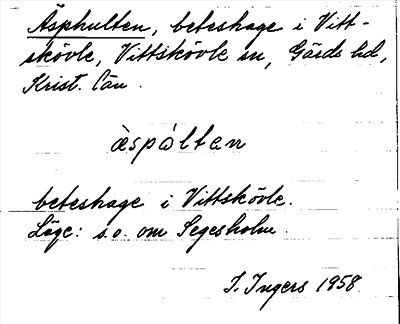 Äsphulten, beteshage i Vitt-
skövle, Vittskövle sn, Gärds hd,
Krist. län.
àspàltan
beteshage i Vittskövle.
Läge: s.o. om Segesholm.
I. Ingers 1958.